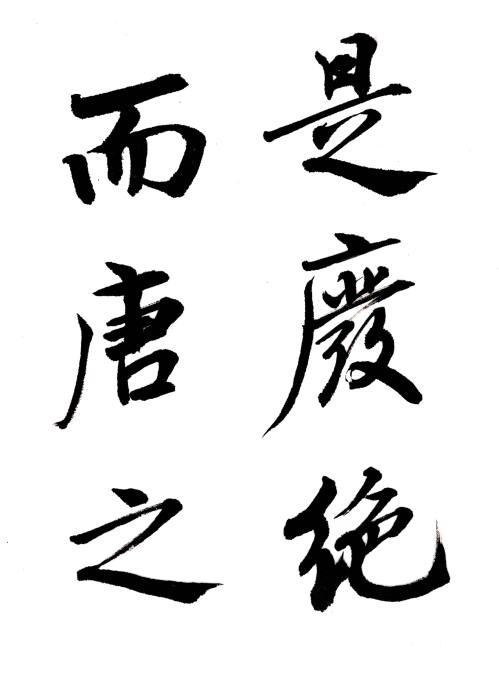 是廢絕
而唐之